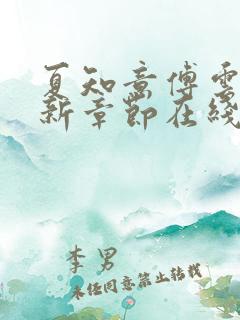 夏知意傅雲
新章節在綫
李男
未经同意禁止转载